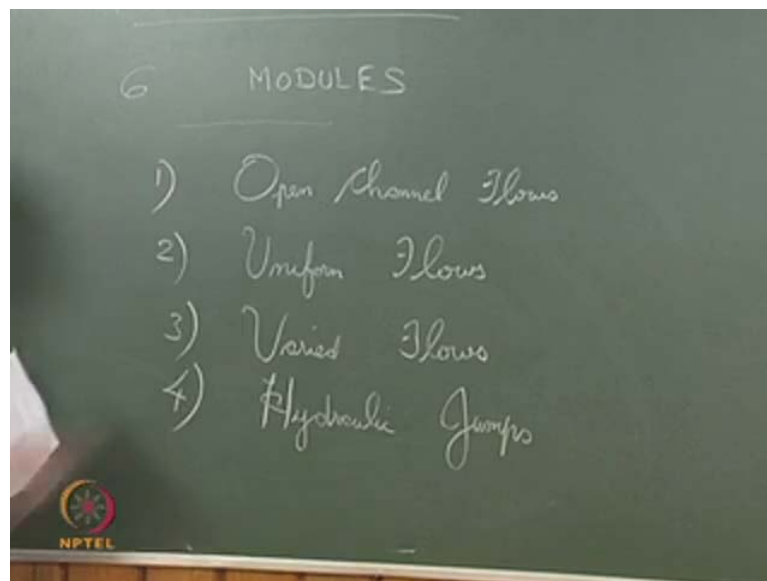 6 MODULES
1) Open Channel Flows
2) Uniform Flows
3) Varied Flows
4) Hydraulic Jumps
NPTEL